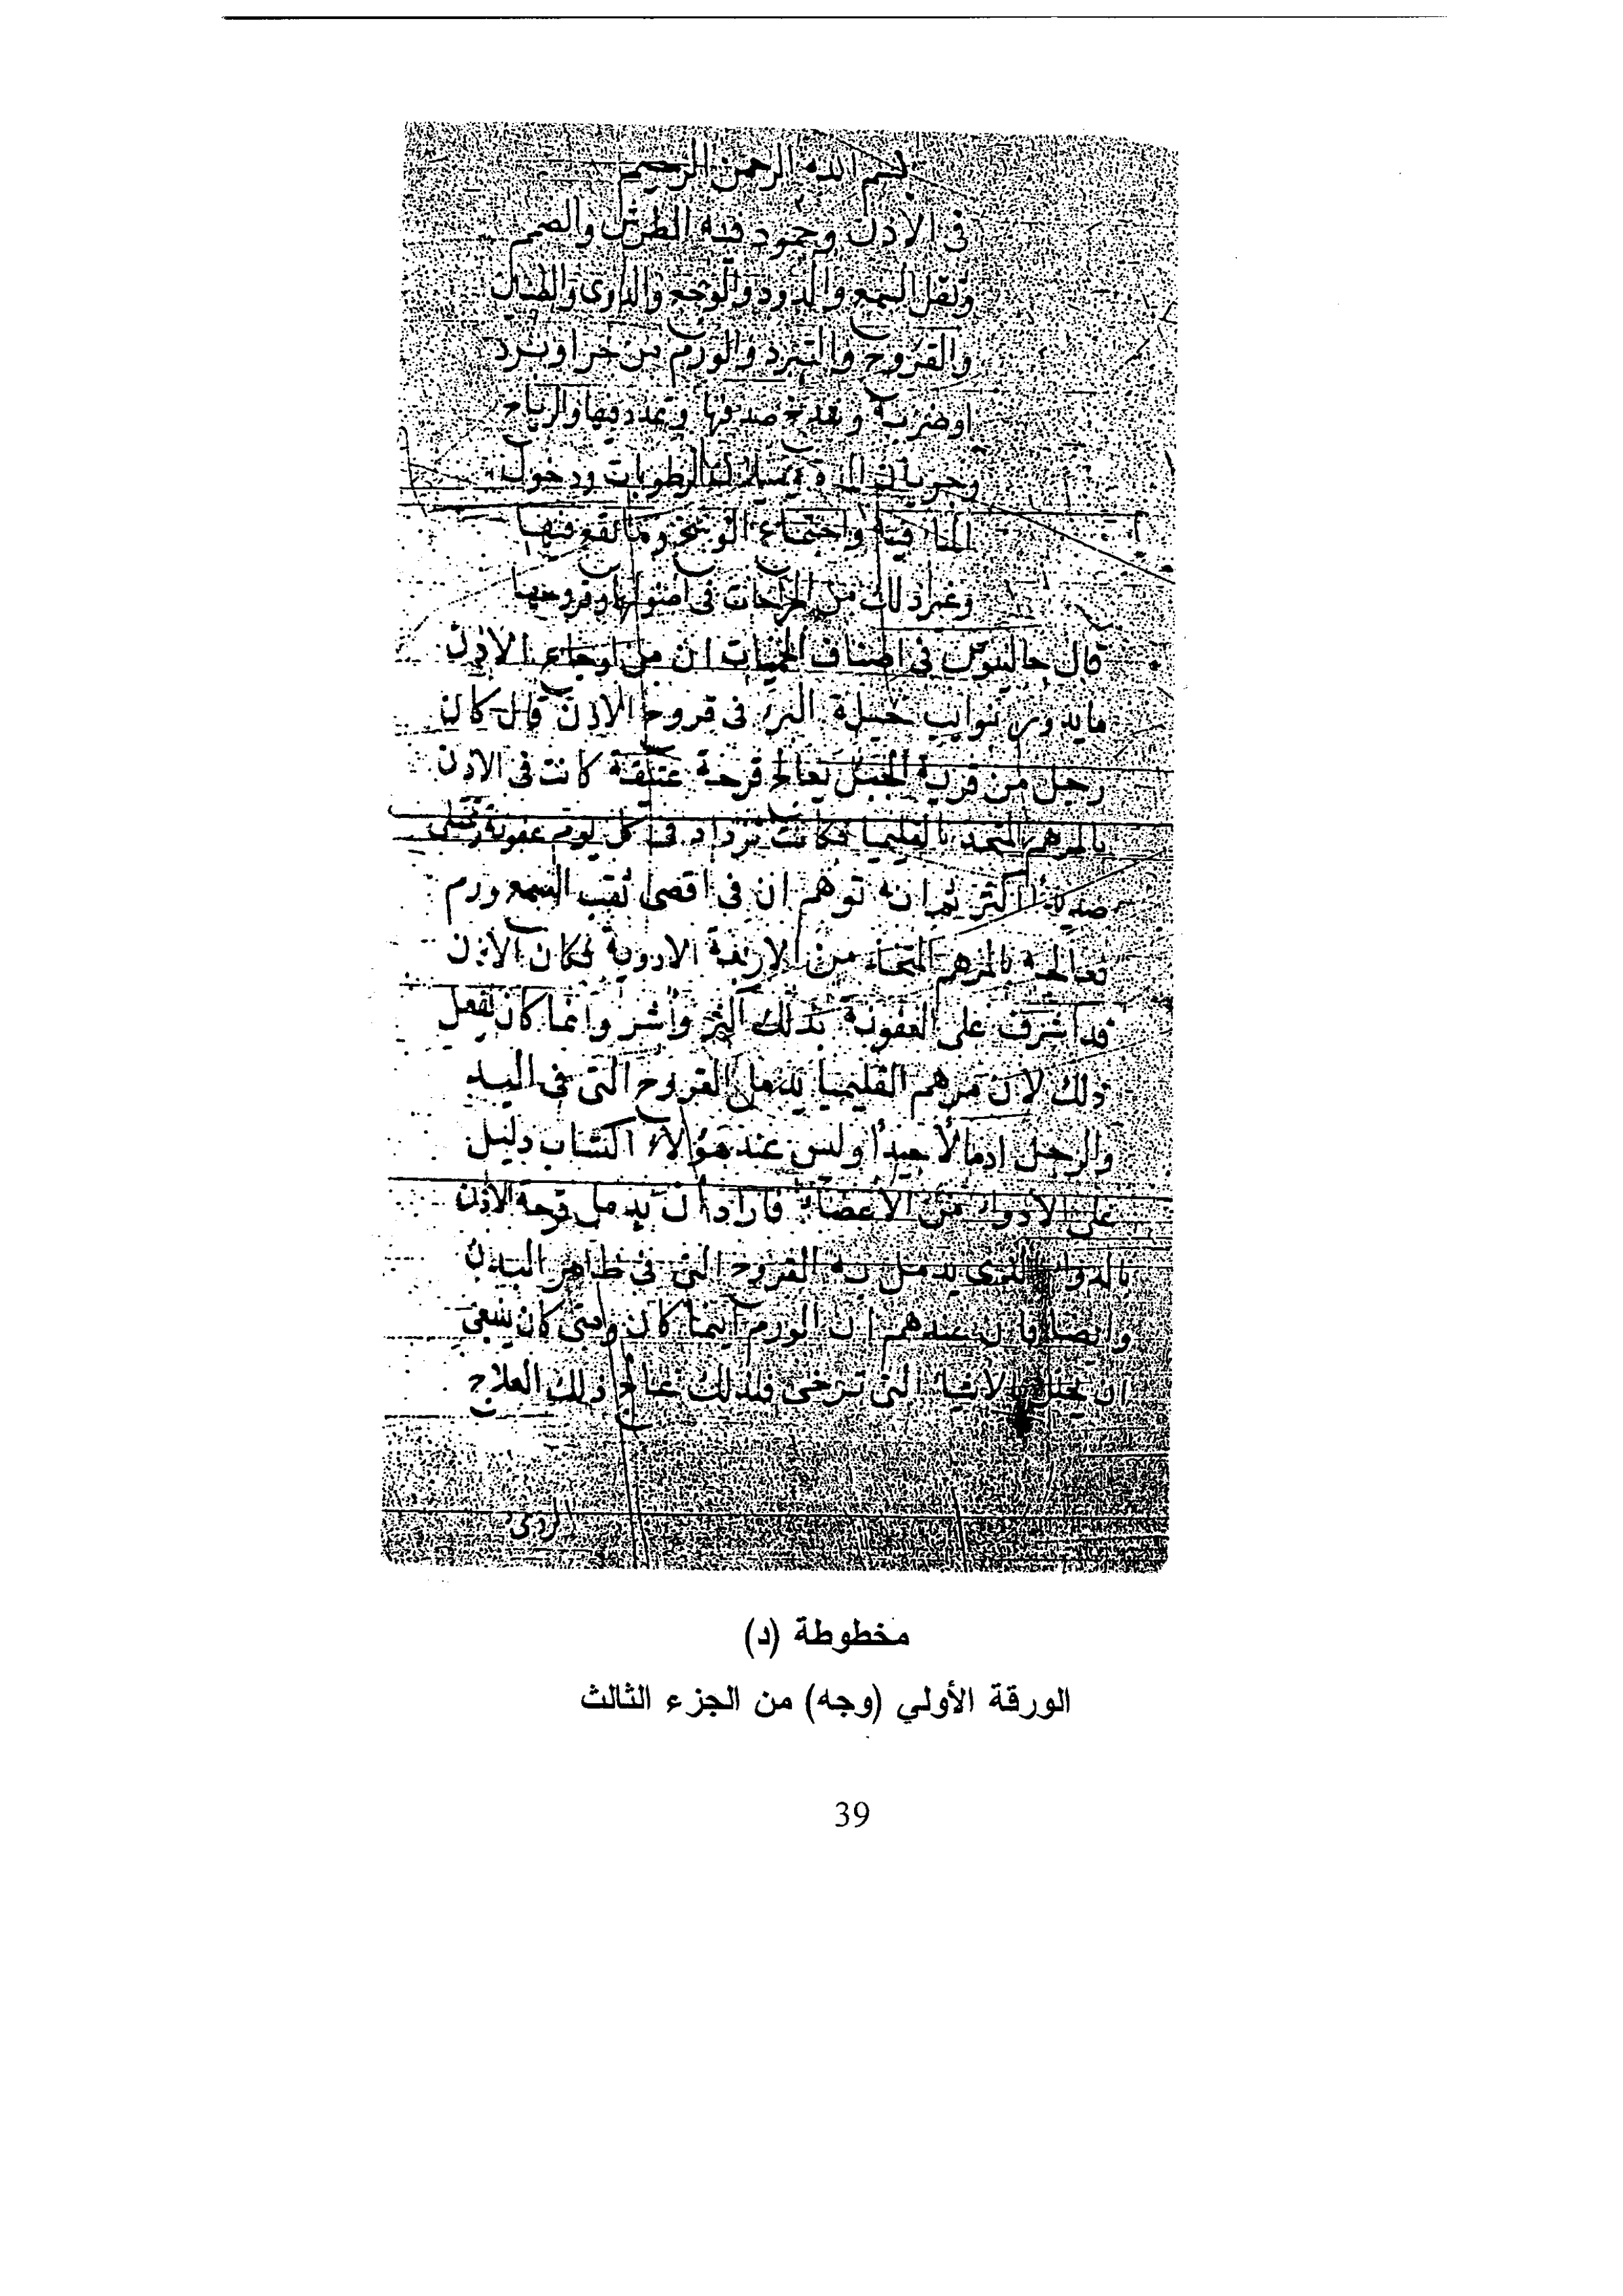 بسم الله الرحمن الرحيم
فى الاذن وجمود فيه الطرش والصمم
وثقل السمع والدود والوجع والدوى والطنين
والقروح والتبرد والورم من حر او برد
او ضربة وتفدغ صدفها وتمدد فيها والرياح
وجريان المدة وسيلان الرطوبات ودخول
الماء فيها واجتماع الوسخ وما يقع فيها
وغير ذلك من الجراحات فى اصولها وقروحها
قال جالينوس فى اصناف الحميات ان من اوجاع الاذن
ما يدور بنوايب حيلة البرء فى قروح الاذن قال كان
رجل من قرية الجبل يعالج قرحة عتيقة كانت فى الاذن
بالمرهم المتخذ بالقليميا فكانت تزداد فى كل يوم عفونة وتمتلى
صديدا اكثر ثم انه توهم ان فى اقصى ثقب السمع ورم
فعالجه بالمرهم المتخذ من الاربعة الادوية فكان الاذن
قد اشرف على العفونة بذلك اكثر واشر وانما كان يفعل
ذلك لان مرهم القليميا يدمل القروح التى فى اليد
والرجل ادمالا جيدا وليس عند هؤلاء اكتساب دليل
على الادواء من الاعضاء فاراد ان يدمل قرحة الاذن
بالدواء الذى يدمل به القروح التى فى ظاهر البدن
وايضا فان عندهم ان الورم اينما كان ومتى كان ينبغى
ان يحلل بالاشياء التى ترخى فلذلك عالج ذلك العلاج
مخطوطة (د)
الورقة الأولي (وجه) من الجزء الثالث
39